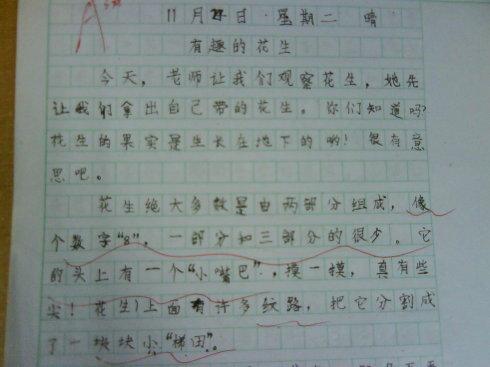 A
11月24日 星期二 晴
有趣的花生
今天，老师让我们观察花生，她先
让我们拿出自己带的花生。你们知道吗？
花生的果实是生长在地下的哟！很有意
思吧。
花生绝大多数是由两部分组成，像
个数字“8”，一部分和三部分的很少。它
的头上有一个“小嘴巴”，摸一摸，真有些
尖！花生上面有许多纹路，把它分割成
了一块块小“梯田”。